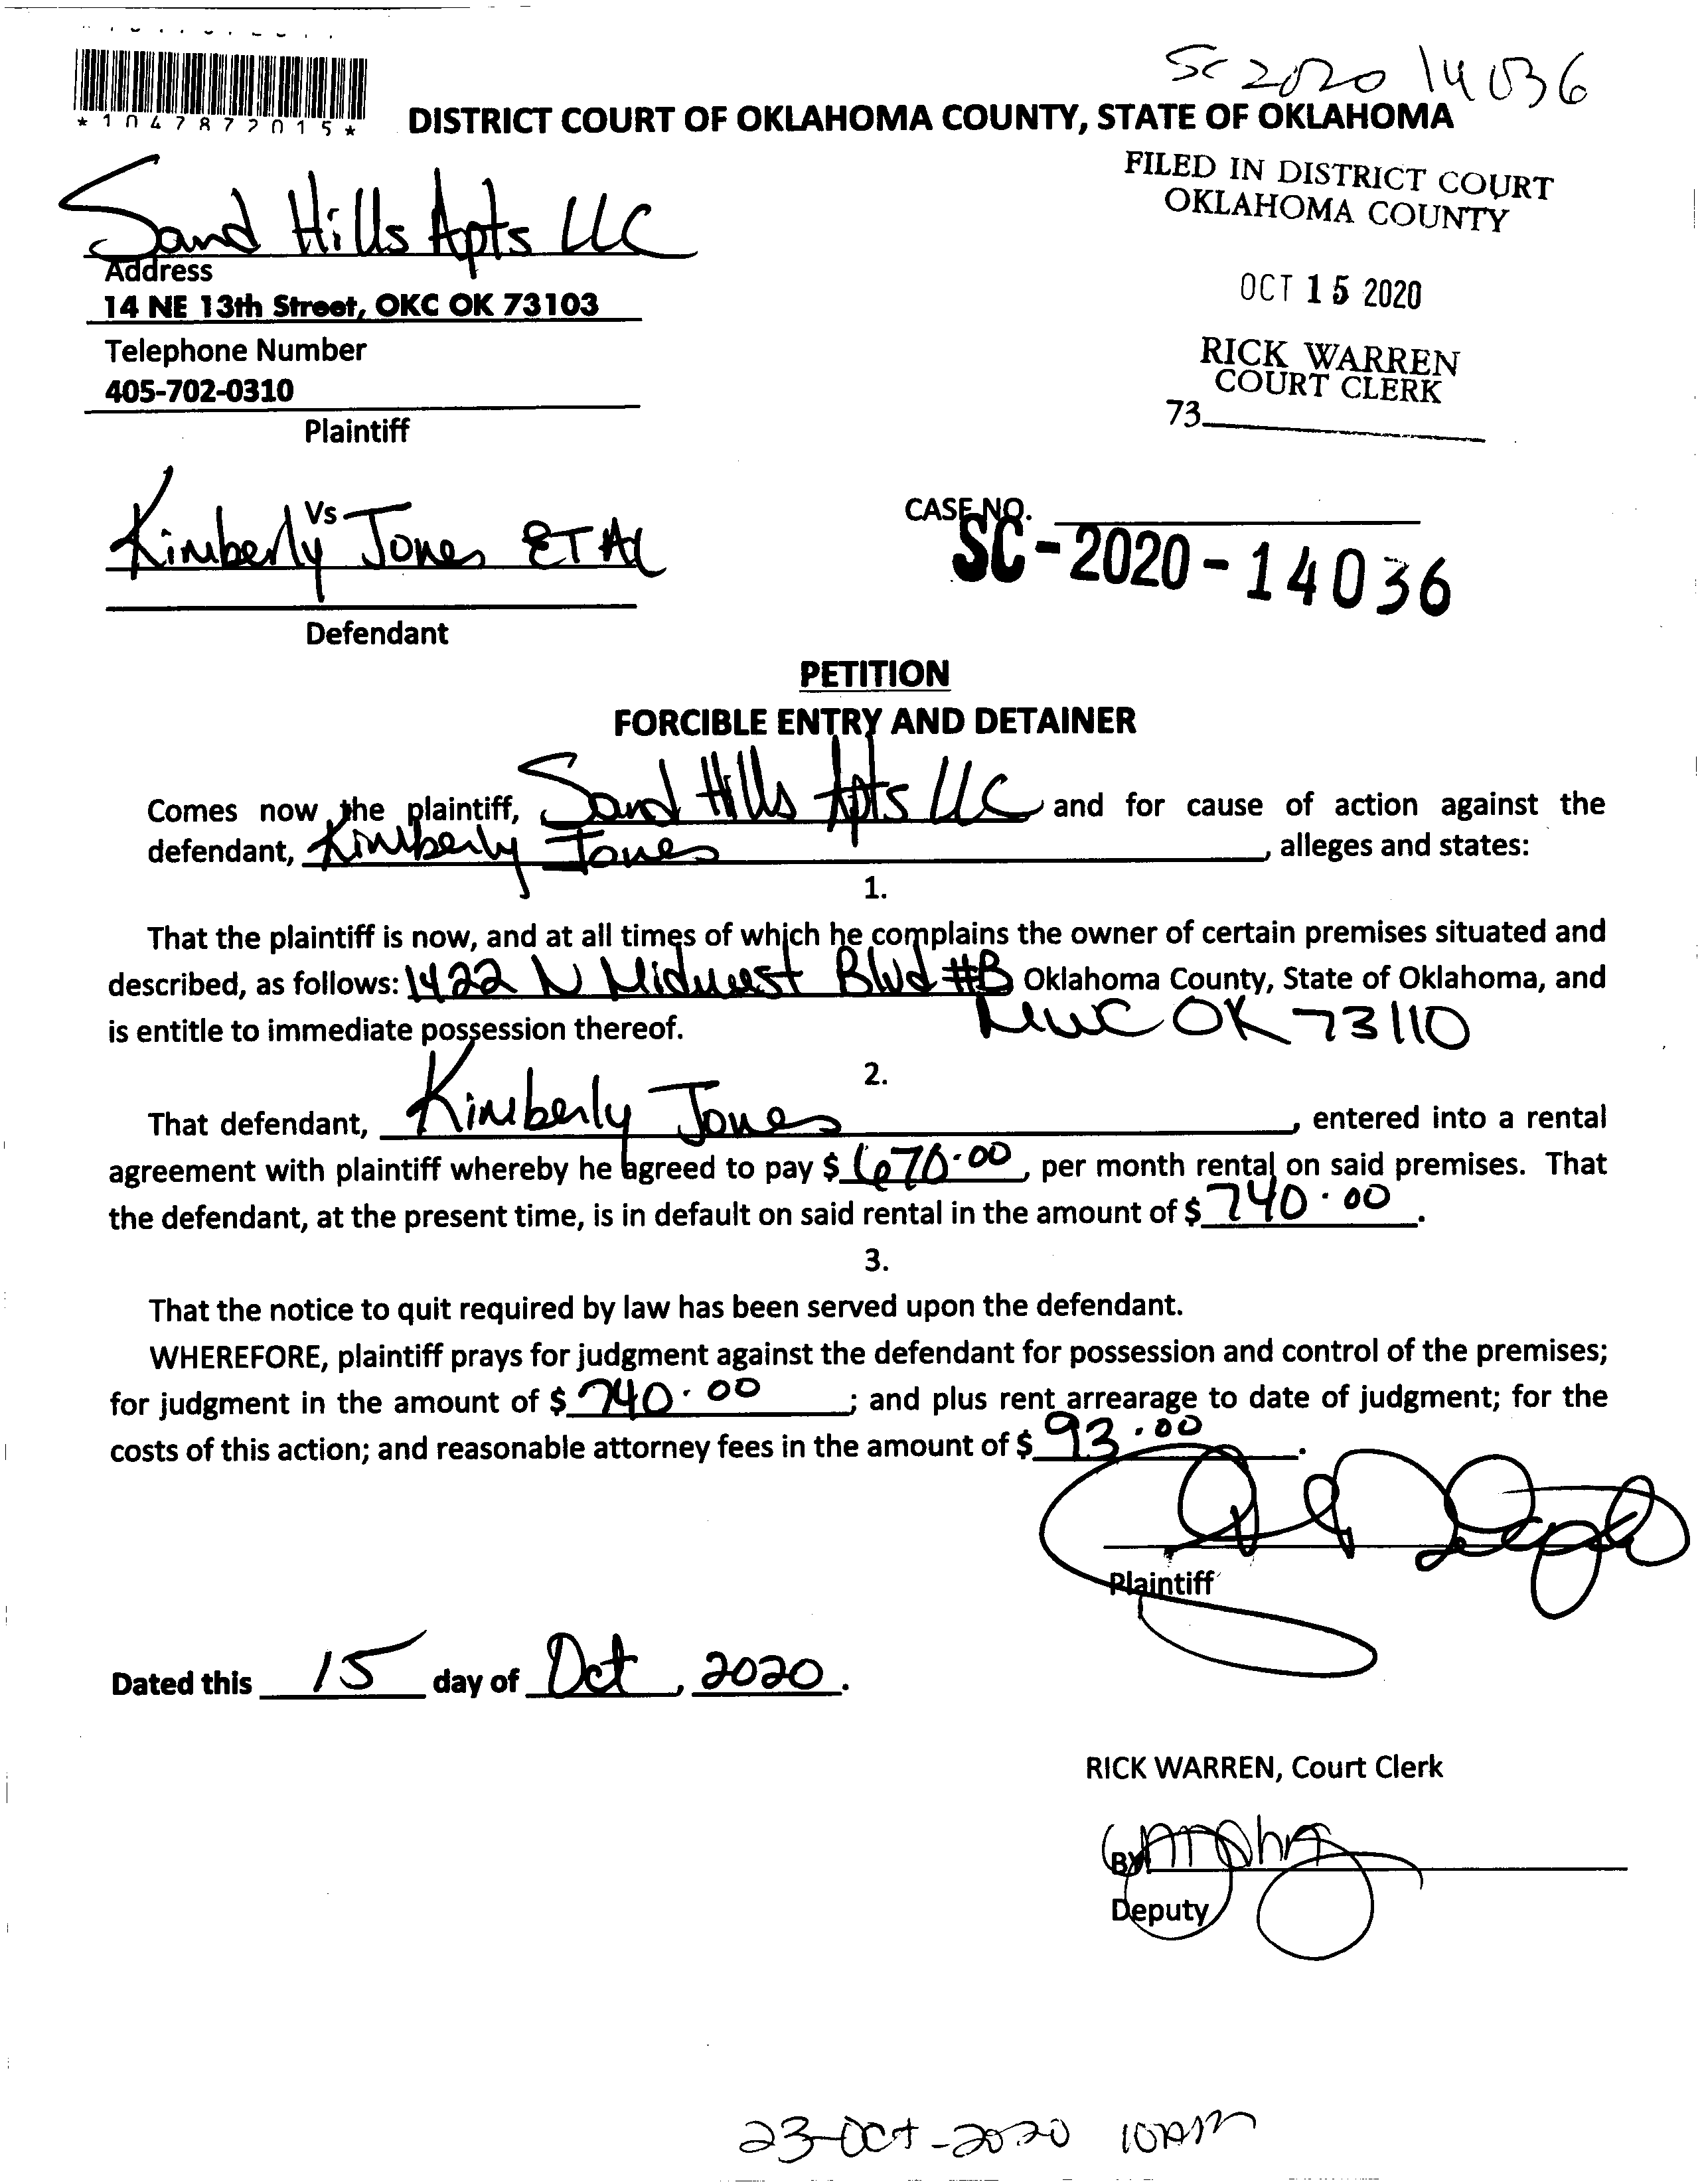 SC 2020 14036
*1047872015*
DISTRICT COURT OF OKLAHOMA COUNTY, STATE OF OKLAHOMA
FILED IN DISTRICT COURT
OKLAHOMA COUNTY
OCT 15 2020
RICK WARREN
COURT CLERK
73
Sand Hills Apts LLC
Address
14 NE 13th Street, OKC OK 73103
Telephone Number
405-702-0310
Plaintiff
Vs
Kimberly Jones ET AL
Defendant
CASE NO.
SC-2020-14036
PETITION
FORCIBLE ENTRY AND DETAINER
Comes now the plaintiff, Sand Hills Apts LLC and for cause of action against the
defendant, Kimberly Jones, alleges and states:
1.
That the plaintiff is now, and at all times of which he complains the owner of certain premises situated and
described, as follows: 1422 N Midwest Blvd #B Oklahoma County, State of Oklahoma, and
is entitle to immediate possession thereof. MWC OK 73110
2.
That defendant, Kimberly Jones, entered into a rental
agreement with plaintiff whereby he agreed to pay $ 670.00, per month rental on said premises. That
the defendant, at the present time, is in default on said rental in the amount of $ 740.00.
3.
That the notice to quit required by law has been served upon the defendant.
WHEREFORE, plaintiff prays for judgment against the defendant for possession and control of the premises;
for judgment in the amount of $ 740.00; and plus rent arrearage to date of judgment; for the
costs of this action; and reasonable attorney fees in the amount of $ 93.00.
Plaintiff
Dated this 15 day of Oct, 2020.
RICK WARREN, Court Clerk
BY
Deputy
23-Oct-2020 10AM